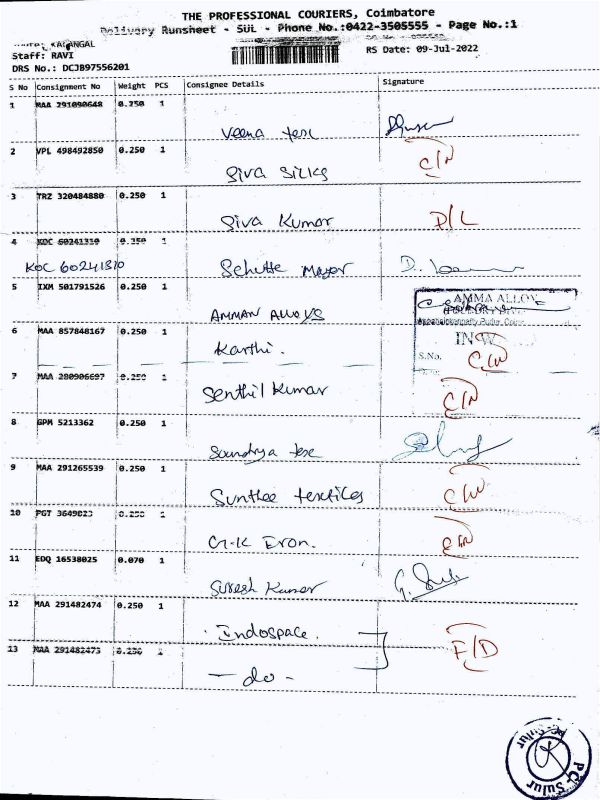 THE PROFESSIONAL COURIERS, Coimbatore
Delivery Runsheet - SUL - Phone No.:0422-3505555 - Page No.:1
KALANGAL
Staff: RAVI
RS Date: 09-Jul-2022
DRS No.: DCJB97556201
S No Consignment No Weight PCS Consignee Details Signature
1 MAA 291090648 0.250 1
Veena tex
2 VPL 498492850 0.250 1
Siva Silks C/N
3 TRZ 320484880 0.250 1
Siva Kumar D/L
4 KOC 60241310 0.350 1
KOC 60241310 Schutte Meyer D.
5 IXM 501791526 0.250 1
AMMAN ALLOYS
AMMA ALLOY
FOUNDRY DIV
INW
S.No.
6 MAA 857848167 0.250 1
Karthi. C/N
7 MAA 280906697 0.250 1
Senthil Kumar C/N
8 GPM 5213362 0.250 1
Soundrya tex
9 MAA 291265539 0.250 1
Sunthee textiles C/N
10 PGT 3649823 0.250 1
G.K Eron. C/N
11 EDQ 16538025 0.070 1
Suresh Kumar
12 MAA 291482474 0.250 1
Indospace. F/D
13 MAA 291482473 0.250 1
- do -
PC-Sulur
PC-Sulur